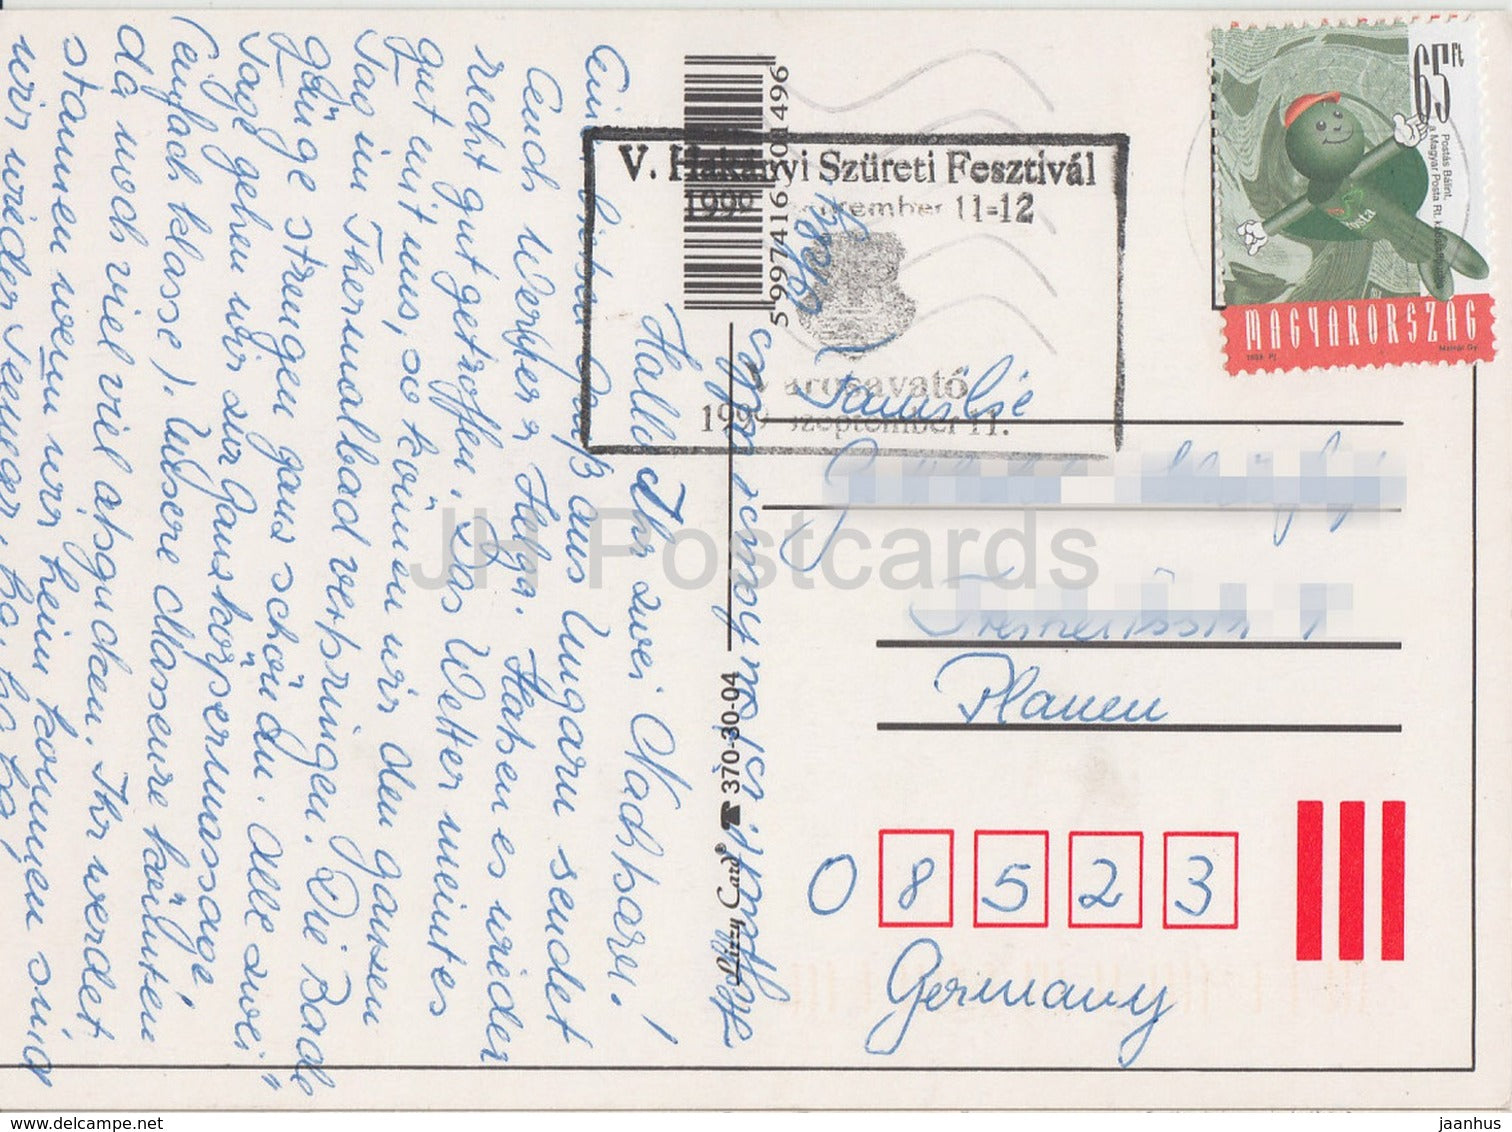 Hallo Ihr zwei Nachbarn!
Ein lieber Gruß aus Ungarn sendet
Euch Werther + Helga. Haben es wieder
recht gut getroffen. Das Wetter meint es
gut mit uns, so können wir den ganzen
Tag im Thermalbad verbringen. Die Bade
gänge strengen ganz schön an. Alle zwei
Tage gehen wir zur Ganzkörpermassage
(einfach klasse). Unsere Masseure könnten
da noch viel viel abgucken. Ihr werdet
staunen wenn wir heim kommen sind
wir wieder
Hoffentlich ist
V. Harkányi Szüreti Fesztivál
1999 szeptember 11-12
Városavató
1999 szeptember 11.
5 997416 101496
Bizzy Card® ☎ 370-30-04
65 Ft
Postás Bálint,
a Magyar Posta Rt. kabalafigurája
MAGYARORSZÁG
1999
Familie
Plauen
0 8 5 2 3
Germany
JH Postcards
www.delcampe.net
jaanhus